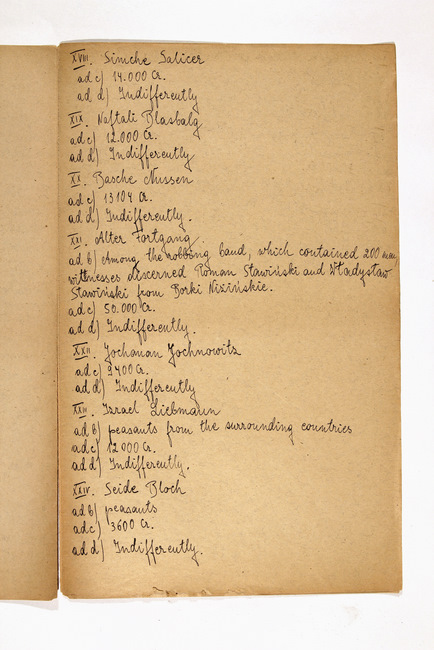 XVIII. Simche Salicer
ad c) 14.000 Cr.
ad d) Indifferently
XIX. Naftali Blasbalg
ad c) 12.000 Cr.
ad d) Indifferently
XX. Basche Nussen
ad c) 13104 Cr.
ad d) Indifferently.
XXI. Alter Fortgang.
ad b) Among the robbing band, which contained 200 men,
wittnesses discerned Roman Stawiński and Władysław
Stawiński from Borki Nizińskie.
ad c) 50.000 Cr.
ad d) Indifferently.
XXII. Jochanan Jochnowitz
ad c) 9400 Cr.
ad d) Indifferently
XXIII. Izrael Liebmann
ad b) peasants from the surrounding countries
ad c) 12000 Cr.
ad d) Indifferently.
XXIV. Seide Bloch
ad b) peasants
ad c) 3600 Cr.
ad d) Indifferently.